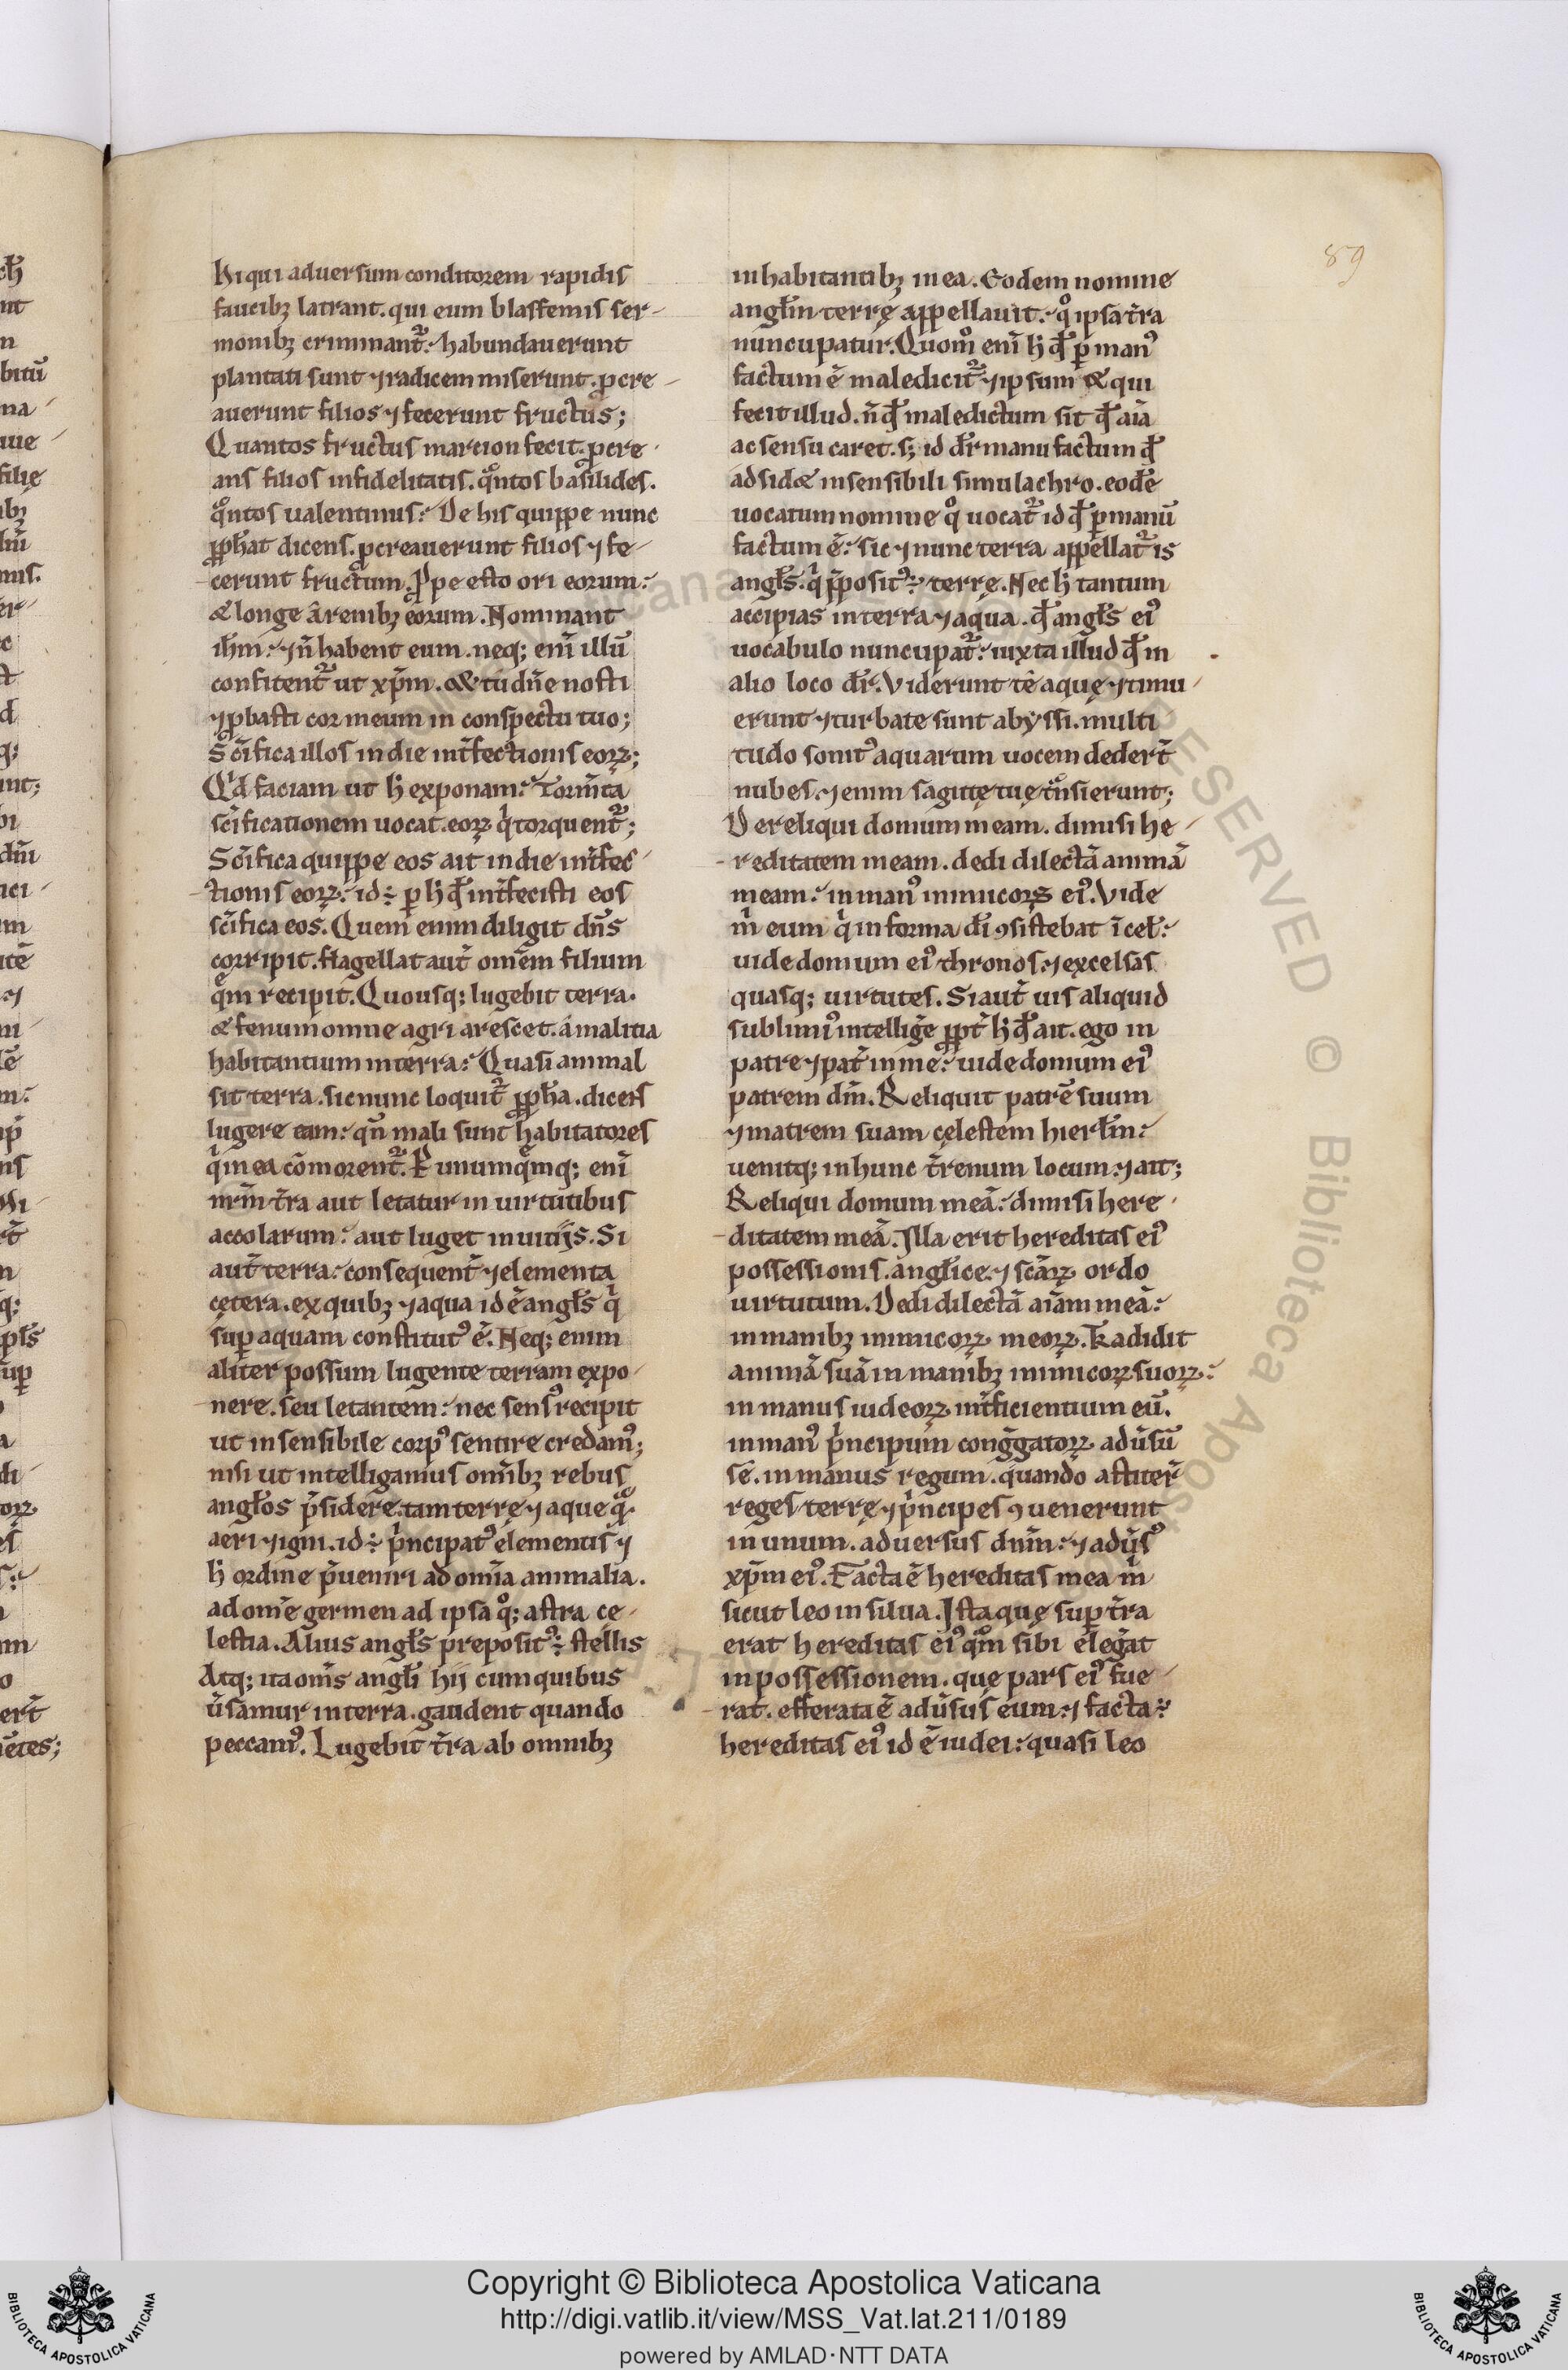 89
hi qui aduersum conditorem rapidis
faucibꝫ latrant. qui eum blasfemis ser-
monibꝫ criminant᷑. habundauerunt
plantati sunt ⁊ radicem miserunt. ꝓcre-
auerunt filios ⁊ fecerunt fructus;
Quantos fructus marcion fecit. ꝓcre-
ans filios infidelitatis. qͦntos basilides.
qͦntos ualentinus. De his quippe nunc
ꝓph̄at dicens. ꝓcreauerunt filios ⁊ fe-
cerunt fructum. Ꝓpe esto ori eorum.
& longe a renibꝫ eorum. Nominant
ih̄m. ⁊ n̄ habent eum. neq; eni̅ illu̅
confitent᷑ ut xp̄m. & tu dn̄e nosti
⁊ ꝓbasti cor meum in conspectu tuo;
Sc̄ifica illos in die int̄fectionis eoꝝ;
Qͥd faciam ut h̄ exponam. Torm̄ta
sc̄ificationem uocat. eoꝝ qͥ torquent᷑;
Sc̄ifica quippe eos ait in die int̄fec-
tionis eoꝝ. id ÷ ꝑ h̄ qd̄ int̄fecisti eos
sc̄ifica eos. Quem enim diligit dn̄s
corripit. flagellat aut̄ om̄em filium
que̅m recipit. Quousq; lugebit terra.
& fenum omne agri arescet. a malitia
habitantium in terra. Quasi animal
sit terra. sic nunc loquit᷑ ꝓph̄a. dicens
lugere eam. qn̄ mali sunt habitatores
qͥ in ea co̅morent᷑. P̱ unumque̅mq; eni̅
nr̄m t̄ra aut letatur in uirtutibus
accolarum. aut luget in uitijs. Si
aut̄ terra. consequent̄ ⁊ elementa
cętera. ex quibꝫ ⁊ aqua id ē angl̄s qͥ
suꝑ aquam constitutꝰ ē. Neq; enim
aliter possum lugente terram expo-
nere. seu letantem. nec sensꝰ recipit
ut insensibile corpꝰ sentire credamꝰ;
nisi ut intelligamus om̄ibꝫ rebus
angl̄os p̄sidere. tam terrę ⁊ aque qͣ̅
aeri ⁊ igni. id ÷ pͥncipatꝰ elementis ⁊
h̄ ordine p̄ueniri ad om̄ia animalia.
ad om̄e germen ad ipsa qͦ; astra ce-
lestia. Alius angl̄s prepositꝰ ÷ stellis
Atq; ita om̄s angl̄i hij cum quibus
u̅samur in terra. gaudent quando
peccamꝰ. Lugebit t̄ra ab omnibꝫ
inhabitantibꝫ in ea. Eodem nomine
angl̄m terrę appellauit. qͦ ipsa t̄ra
nuncupatur. Quomͦ eni̅ h̄ qd̄ ꝑ manꝰ
factum ē maledicit᷑ ⁊ ipsum & qui
fecit illud. n̄ qd̄ maledictum sit qd̄ ai̅a
ac sensu caret. sꝫ id dr̄ manu factum qd̄
adsid& insensibili simulachro. eode̅
uocatum nomine qͦ uocat᷑ id qd̄ ꝑ manu̅
factum ē. sic ⁊ nunc terra appellat᷑ is
angl̄s. qͥ p̄positꝰ ÷ terrę. Nec h̄ tantum
accipias in terra ⁊ aqua. qd̄ angl̄s eiꝰ
uocabulo nuncupat᷑. iuxta illud qd̄ in
alio loco dr̄. Viderunt te aquę ⁊ timu-
erunt ⁊ turbate sunt abyssi. multi
tudo sonitꝰ aquarum uocem dedert̄
nubes. ⁊ enim sagittę tuę tͣnsierunt;
Dereliqui domum meam. dimisi he-
reditatem meam. dedi dilecta̅ anima̅
meam. in manꝰ inimicoꝝ eiꝰ. Vide
m̄ eum qͥ in forma dī ꝯsistebat i̅ cel̄.
uide domum eiꝰ thronos. ⁊ excelsas
quasq; uirtutes. Si aut̄ uis aliquid
sublimiꝰ intellige̅ ꝓpt̄ h̄ qd̄ ait. ego in
patre ⁊ pat̄ in me. uide domum eiꝰ
patrem dm̄. Reliquit patre̅ suum
⁊ matrem suam cęlestem hierl̄m.
uenitq; in hunc t̄renum locum. ⁊ ait;
Reliqui domum mea̅. dimisi here-
ditatem mea̅. Illa erit hereditas eiꝰ
possessionis. anglice. ⁊ sc̄aꝝ ordo
uirtutum. Dedi dilecta̅ ai̅am mea̅.
in manibꝫ inimicoꝝ meoꝝ. Tͣdidit
anima̅ sua̅ in manibꝫ inimicoꝝ suoꝝ.
in manus iudeoꝝ int̄ficientium eu̅.
in manꝰ pͥncipum congͣgatoꝝ adu̅su̅
se. in manus regum. quando astiter̄
reges terrę ⁊ pͥncipes ꝯuenerunt
in unum. aduersus dnm̄. ⁊ adu̅sꝰ
xp̄m eiꝰ. Facta ē hereditas mea m̄
sicut leo in silua. Ista quę suꝑ t̄ra
erat hereditas eiꝰ qͣm sibi elegͣat
in possessionem. que pars eiꝰ fue-
rat. efferata ē adu̅sus eum. ⁊ facta ÷
hereditas eiꝰ id ē iudei. quasi leo
Copyright © Biblioteca Apostolica Vaticana
http://digi.vatlib.it/view/MSS_Vat.lat.211/0189
powered by AMLAD·NTT DATA
BIBLIOTECA APOSTOLICA VATICANA
BIBLIOTECA APOSTOLICA VATICANA